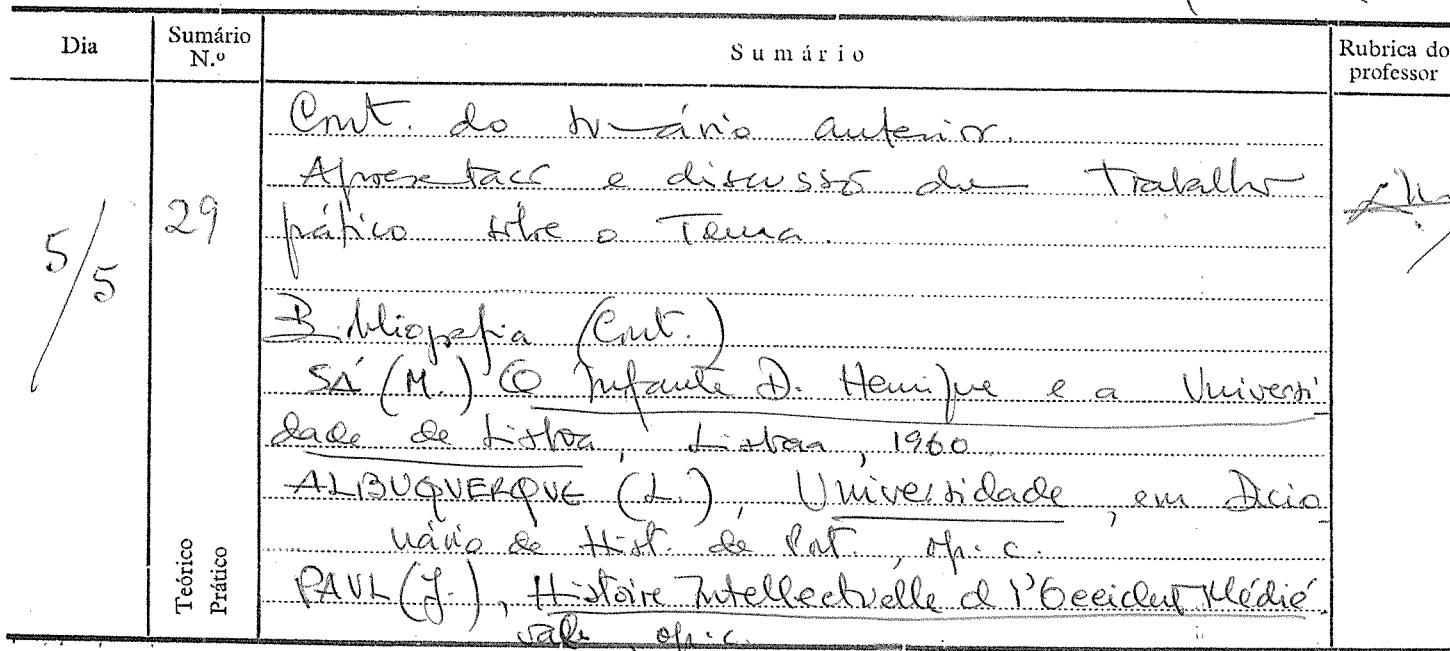 Dia
Sumário
N.º
Sumário
Rubrica do
professor
5/5
29
Teórico
Prático
Cont. do sumário anterior.
Apresentação e discussão de trabalho
prático sobre o Tema.
Bibliografia (Cont.)
SÁ (M.) O Infante D. Henrique e a Universi
dade de Lisboa, Lisboa, 1960
ALBUQUERQUE (L.), Universidade, em Dicio
nário de Hist. de Port., op. c.
PAUL (J.), Histoire Intellectuelle d l'Occident Médié
vale, op. c.